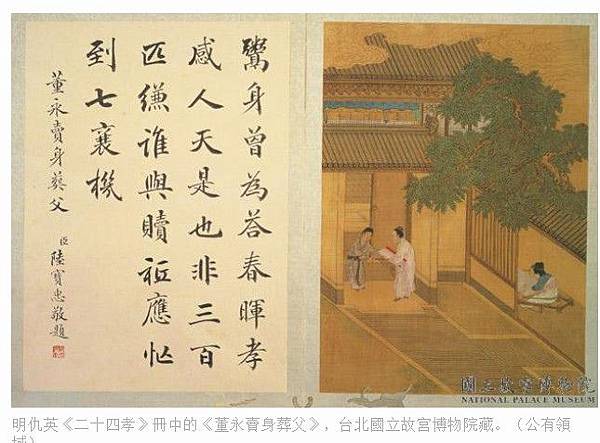 鬻身曾為答春暉孝
感人天是也非三百
匹縑誰與贖祗應忙
到七襄機
董永賣身葬父
臣陸寶忠敬題
國立故宮博物院
NATIONAL PALACE MUSEUM
明仇英《二十四孝》冊中的《董永賣身葬父》，台北國立故宮博物院藏。（公有領